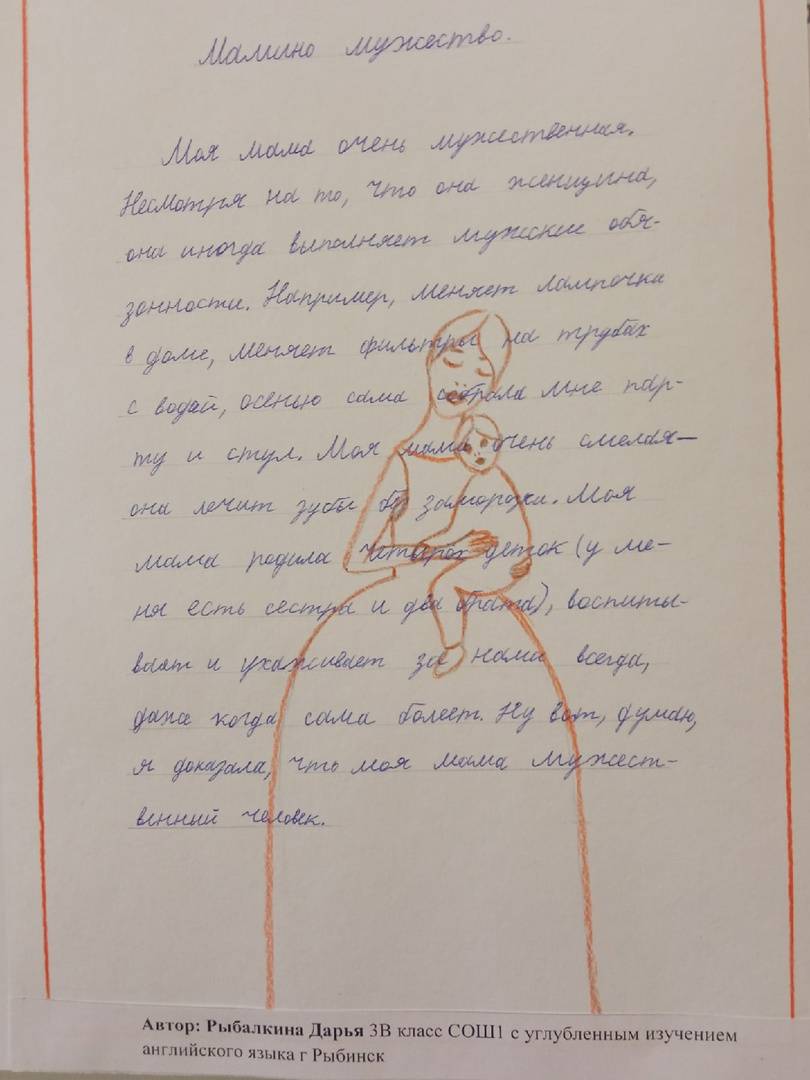 Мамино мужество.
Моя мама очень мужественная.
Несмотря на то, что она женщина,
она иногда выполняет мужские обя-
занности. Например, меняет лампочки
в доме, меняет фильтры на трубах
с водой, осенью сама собрала мне пар-
ту и стул. Моя мама очень смелая—
она лечит зубы без заморозки. Моя
мама родила четырёх деток (у ме-
ня есть сестра и два брата), воспиты-
вает и ухаживает за нами всегда,
даже когда сама болеет. Ну вот, думаю,
я доказала, что моя мама мужест-
венный человек.
Автор: Рыбалкина Дарья 3В класс СОШ1 с углубленным изучением
английского языка г Рыбинск